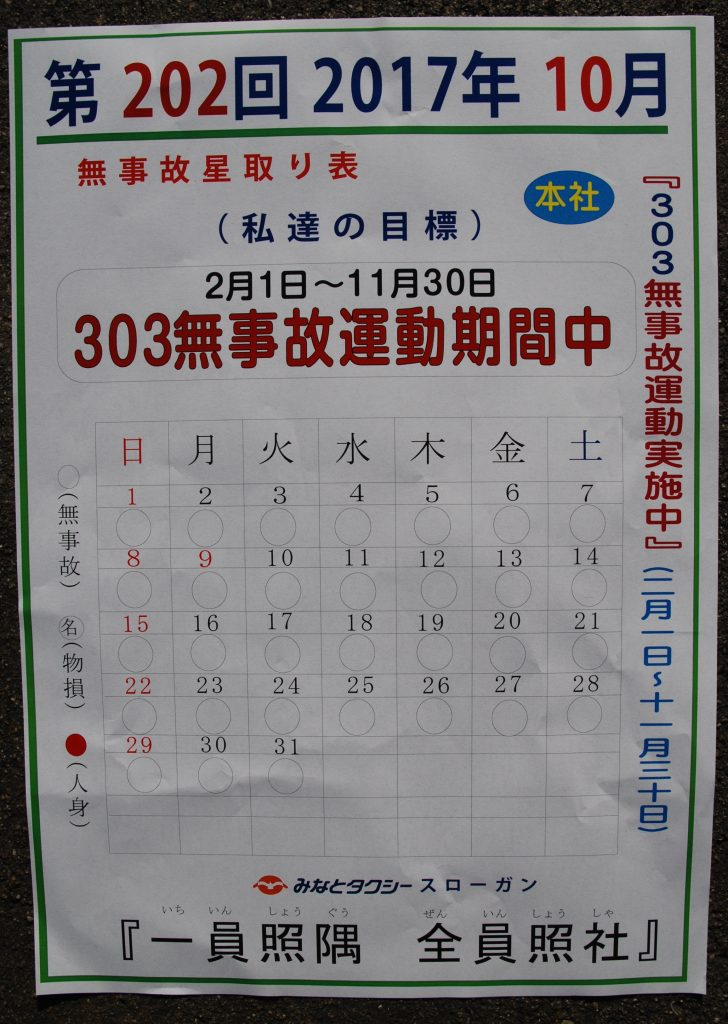 第 202回 2017年 10月
無事故星取り表
本社
(私達の目標)
2月1日～11月30日
303無事故運動期間中
『303無事故運動実施中』(二月一日～十一月三十日)
日 月 火 水 木 金 土
1 2 3 4 5 6 7
8 9 10 11 12 13 14
15 16 17 18 19 20 21
22 23 24 25 26 27 28
29 30 31
○(無事故) ㊔(物損) ●(人身)
みなとタクシー スローガン
いち いん しょう ぐう ぜん いん しょう しゃ
『一員照隅 全員照社』